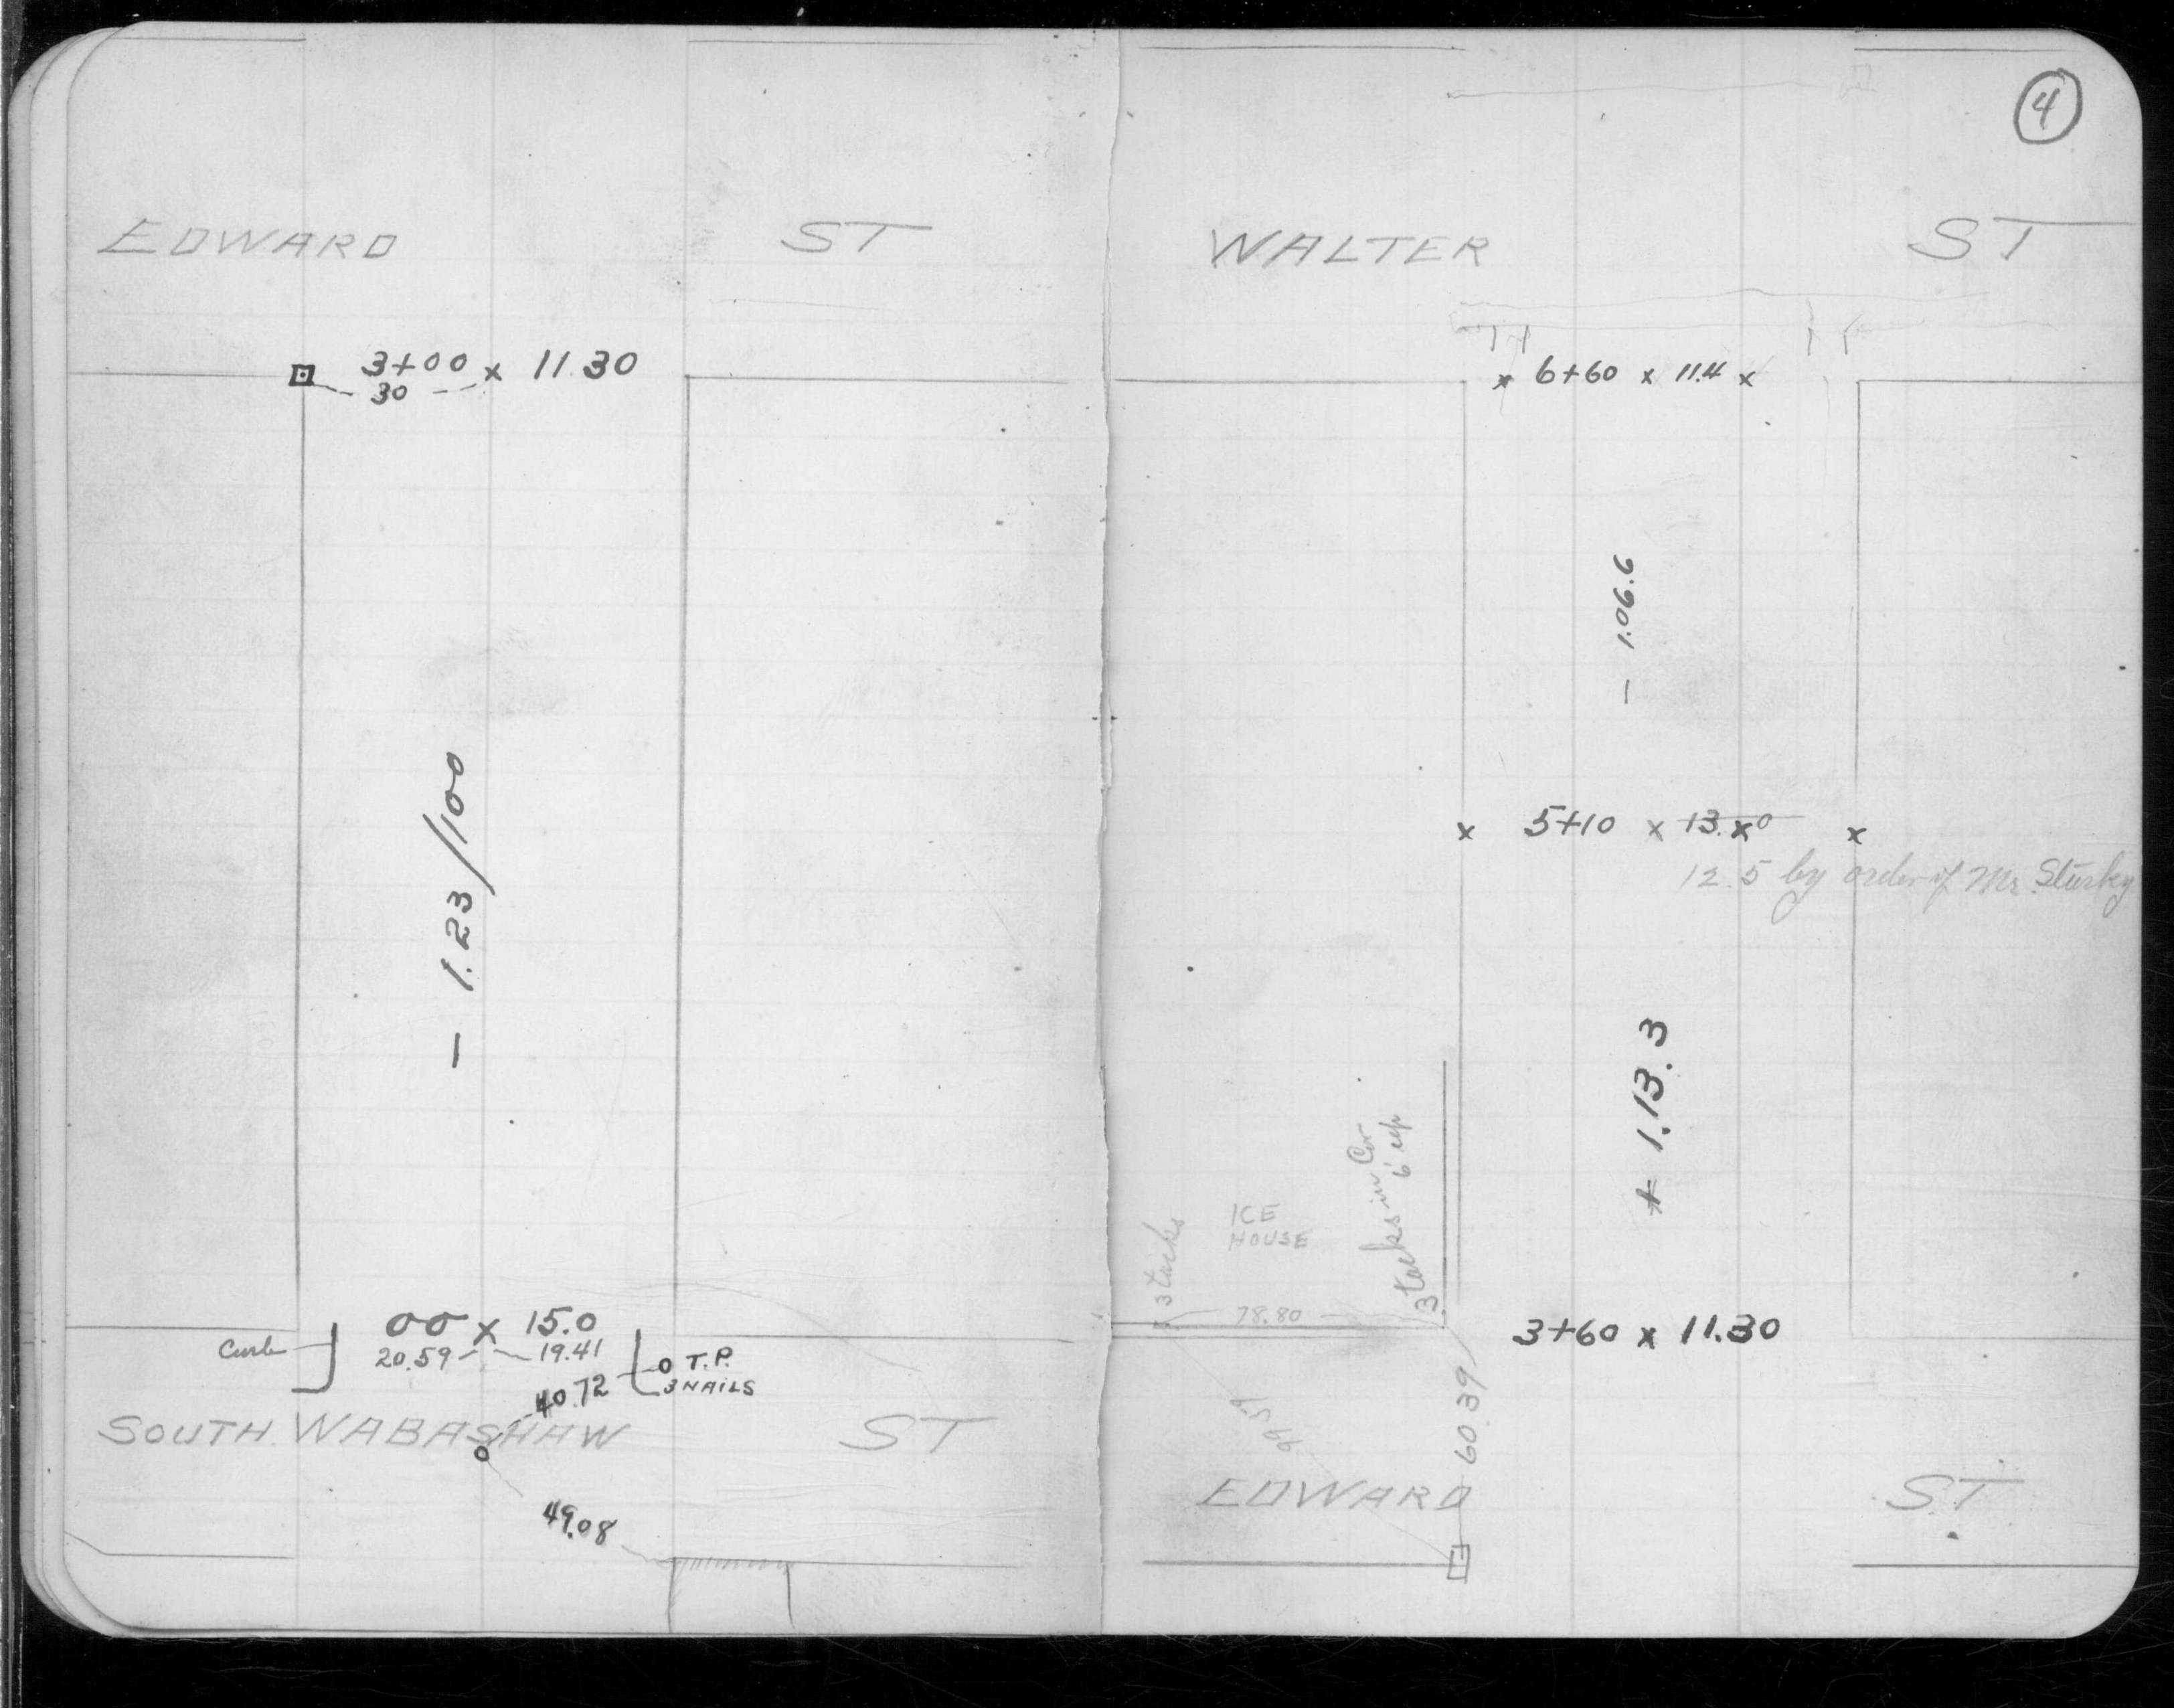 EDWARD ST
3+00 x 11.30
30
- 1.23/100
00 x 15.0
Curb 20.59 19.41
O T.P.
3 NAILS
40.72
SOUTH WABASHAW ST
49.08
4
WALTER ST
x 6+60 x 11.4 x
- 1.06.6
x 5+10 x 13.x0 x
12.5 by order of Mr. Sturky
+ 1.13.3
3 tacks in Cor
6' up
ICE
HOUSE
3 tacks
78.80
3+60 x 11.30
60.39
EDWARD ST